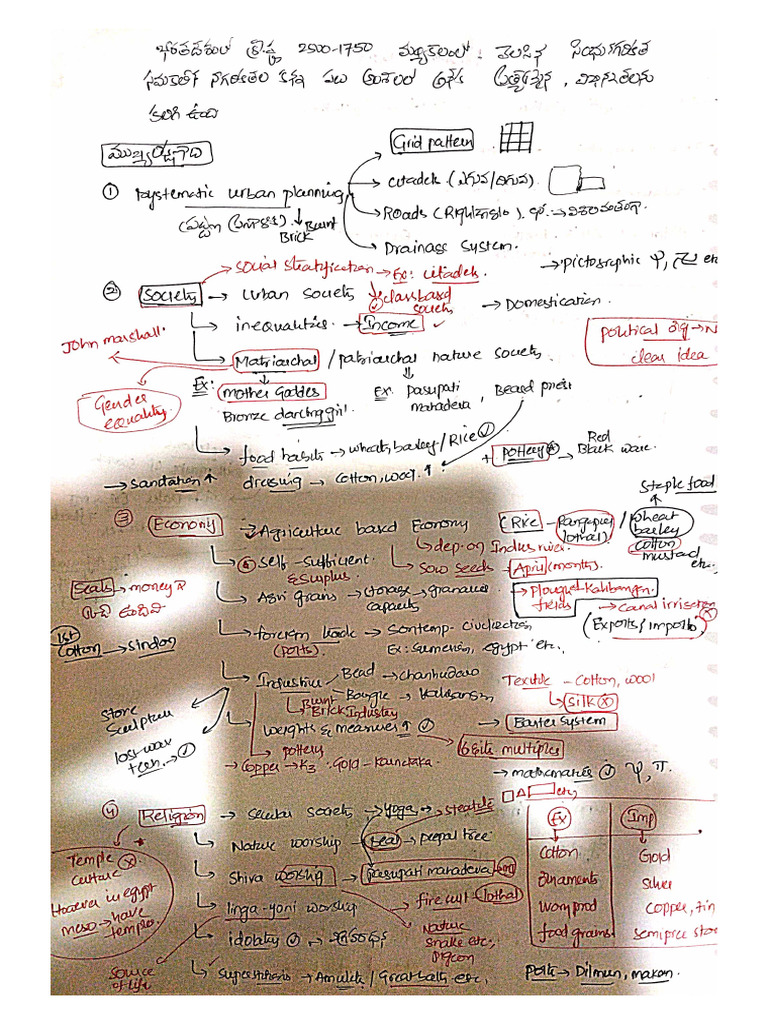 భారతదేశంలో క్రీ.పూ 2500-1750 మధ్యకాలంలో వెలసిన సింధునాగరికత
సమకాలీన నాగరికతల కన్నా పలు అంశాలలో అనేక
కలిగి ఉంది
Grid pattern
① Systematic urban planning
→ citadels (ఎగువ/దిగువ)
→ Burnt Brick
→ Roads
→ Drainage System.
→ Social stratification → Ex: citadels.
→ pictographic
② Society → Urban Society
class based society
→ Domestication.
→ inequalities. → Income
Political org → N
clear idea
John marshall.
→ Matriarchal / patriarchal nature society
Gender equality.
Ex: mother Goddes
Bronze dancing girl.
Ex: Pasupati mahadeva, Beard priest
→ food habits → wheat, barley / Rice
+ Pottery → Red Black ware.
→ Sanitation ↑
dressing → Cotton, wool ↑
Staple food
③ Economy → Agriculture based Economy
(Rice - Rangapur, lothal) / wheat barley
cotton
mustard etc.
→ dep. on Indus river.
→ self-sufficient & Surplus.
→ Sow seeds → April (months).
Seals → money
→ Agri grains → storage capacity → granaries
→ Plouged - Kalibangan fields
→ canal irrigation
1st Cotton → Sindon
→ foreign trade (ports). → contemp. civilization
Ex: Sumerian, egypt etc.
(Exports/imports)
→ Industries
Bead → chanhudaro
Bangle →
Burnt Brick Industry
Textile - Cotton, wool
→ silk ⓧ
Stone sculpture
lost wax
→ weights & measures ↑
→ Barter System
→ pottery
→ Copper → K3. Gold - Karnataka
→ 16 its multiples
→ mathematics ψ, π.
□ △ ▭ etc,
④ Religion → secular society → yoga
→ steatite
→ Nature worship → seal → peepal tree.
Temple culture ⓧ
However in egypt
meso → have temples.
→ Shiva worship → pasupati mahadeva
→ linga-yoni worship
fire cult - lothal
Nature snake etc, pigeon
→ idolatry → విగ్రహారాధన
source of life
→ superstitions → Amulets / Great bath etc,
Ex | Imp
Cotton | Gold
Ornaments | Silver
Wom prod | Copper, tin
food grains | semi prec stor
Ports → Dilmun, makan.